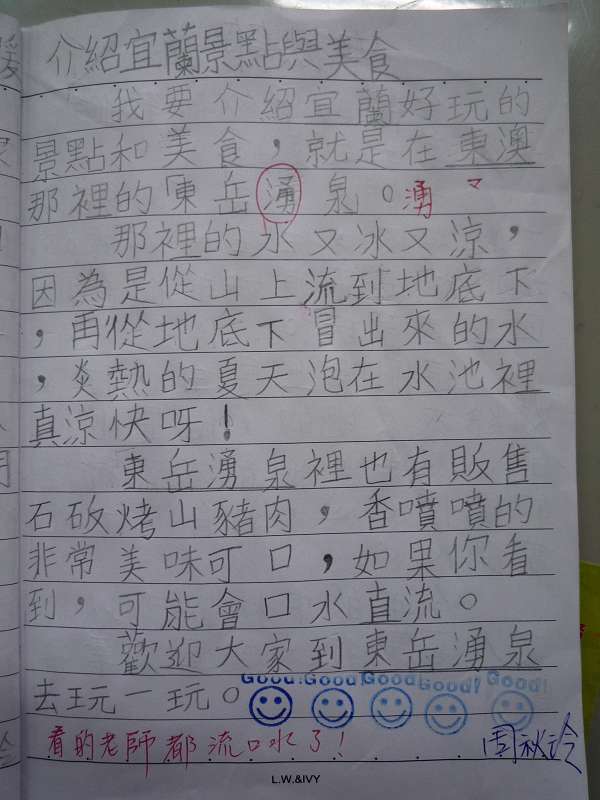 介紹宜蘭景點與美食
我要介紹宜蘭好玩的
景點和美食,就是在東澳
那裡的「東岳湧泉。湧
那裡的水又冰又涼,
因為是從山上流到地底下
,再從地底下冒出來的水
,炎熱的夏天泡在水池裡
真涼快呀!
東岳湧泉裡也有販售
石板烤山豬肉,香噴噴的
非常美味可口,如果你看
到,可能會口水直流。
歡迎大家到東岳湧泉
去玩一玩。
Good! Good! Good! Good! Good!
看的老師都流口水了!
L.W.&IVY